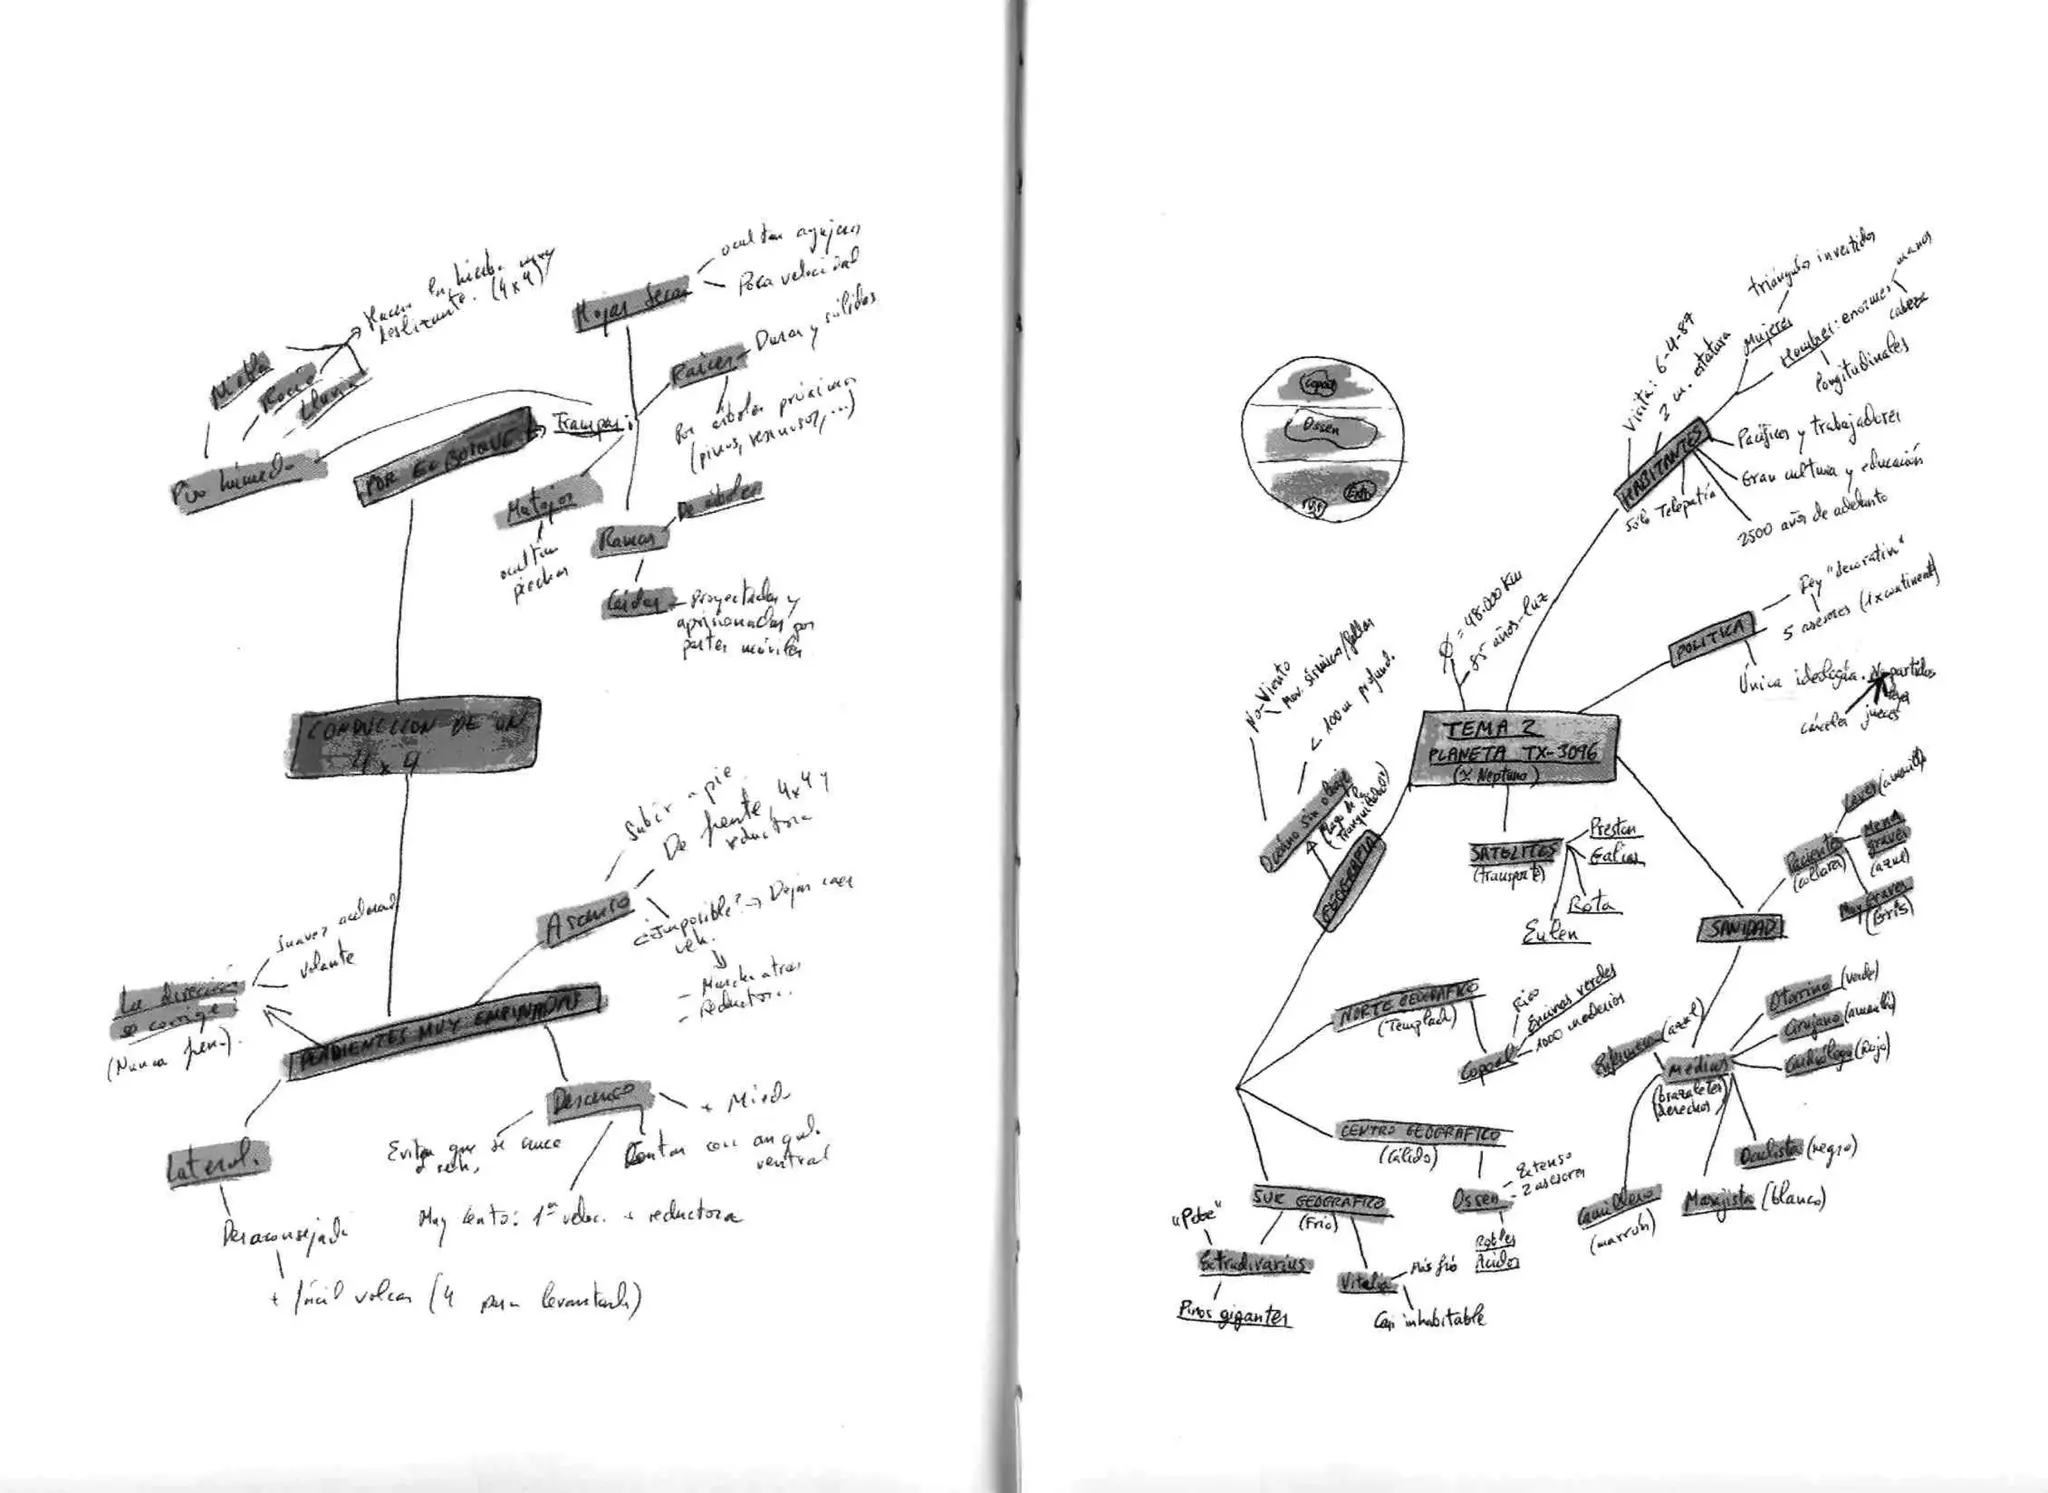 ocultan agujeros
Poca velocidad
Hojas secas
Hacen la hierba muy
deslizante. (4x4)
Niebla
Rocío
Lluvia
Piso húmedo
POR EL BOSQUE
Trampas:
Raíces
Duras y sólidas
Por árboles próximos
(pinos,
Matojos
ocultan
piedras
Ramas
De árboles
Caídas
Proyectadas y
aprisionadas por
partes móviles
CONDUCCION DE UN
4x4
Subir a pie
De frente 4x4 y
reductora
Ascenso
¿imposible? → Dejar caer
veh.
- Marcha atrás
- reductora.
Suavez
volante
La dirección
se corrige
(Nunca fren.).
PENDIENTES MUY EMPINADAS
Descenso
+ Miedo
Evitar que se cruce
Contar con angul.
ventral
Muy lento: 1ª veloc. + reductora
Lateral.
Desaconsejado
+ fácil volcar (4 para levantarlo)
Copoal
Ossen
Visita: 6-4-87
2 m. estatura
Mujeres
triángulos invertidos
Hombres: enormes
manos
cabeza
longitudinales
HABITANTES
Pacíficos y trabajadores
Gran cultura y educación
2500 años de adelanto
Sólo Telepatía
POLITICA
Rey "decorativo"
5 asesores (1 x continente)
Única ideología. No partidos
leyes
jueces
cárceles
Ø = 48.000 Km
85 años-luz
TEMA 2
PLANETA TX-3096
(≈ Neptuno)
No-Viento
Mov. sísmicos/fallas
< 100 m profund.
Océano sin oleaje
(Lago de la
Tranquilidad)
GEOGRAFIA
SATELITES
(transporte)
Preston
Galias
Rota
Eulen
SANIDAD
Pacientes
(collares)
Leves (amarillo)
Menos
graves
(azul)
Muy graves
(Gris)
Médicos
(brazaletes
derechos)
Otorrino (verde)
Cirujano (amarillo)
Cardiólogo (Rojo)
Oculista (negro)
Masajista (blanco)
Camillero
(marrón)
Enfermera (azul)
NORTE GEOGRAFICO
(Templado)
Copoal
Rico
Encinas verdes
1000 medicinas
CENTRO GEOGRAFICO
(Cálido)
Ossen
- Extenso
- 2 asesores
Robles
Acidos
SUR GEOGRAFICO
(Frío)
"Pobe"
Extradivarius
Pinos gigantes
Vitalia
Más frío
Casi inhabitable